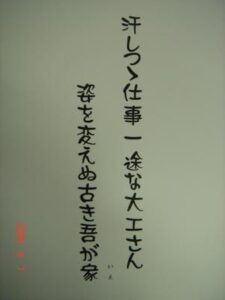 汗しつゝ仕事一途な大工さん
姿を変えぬ古き吾が家
いえ